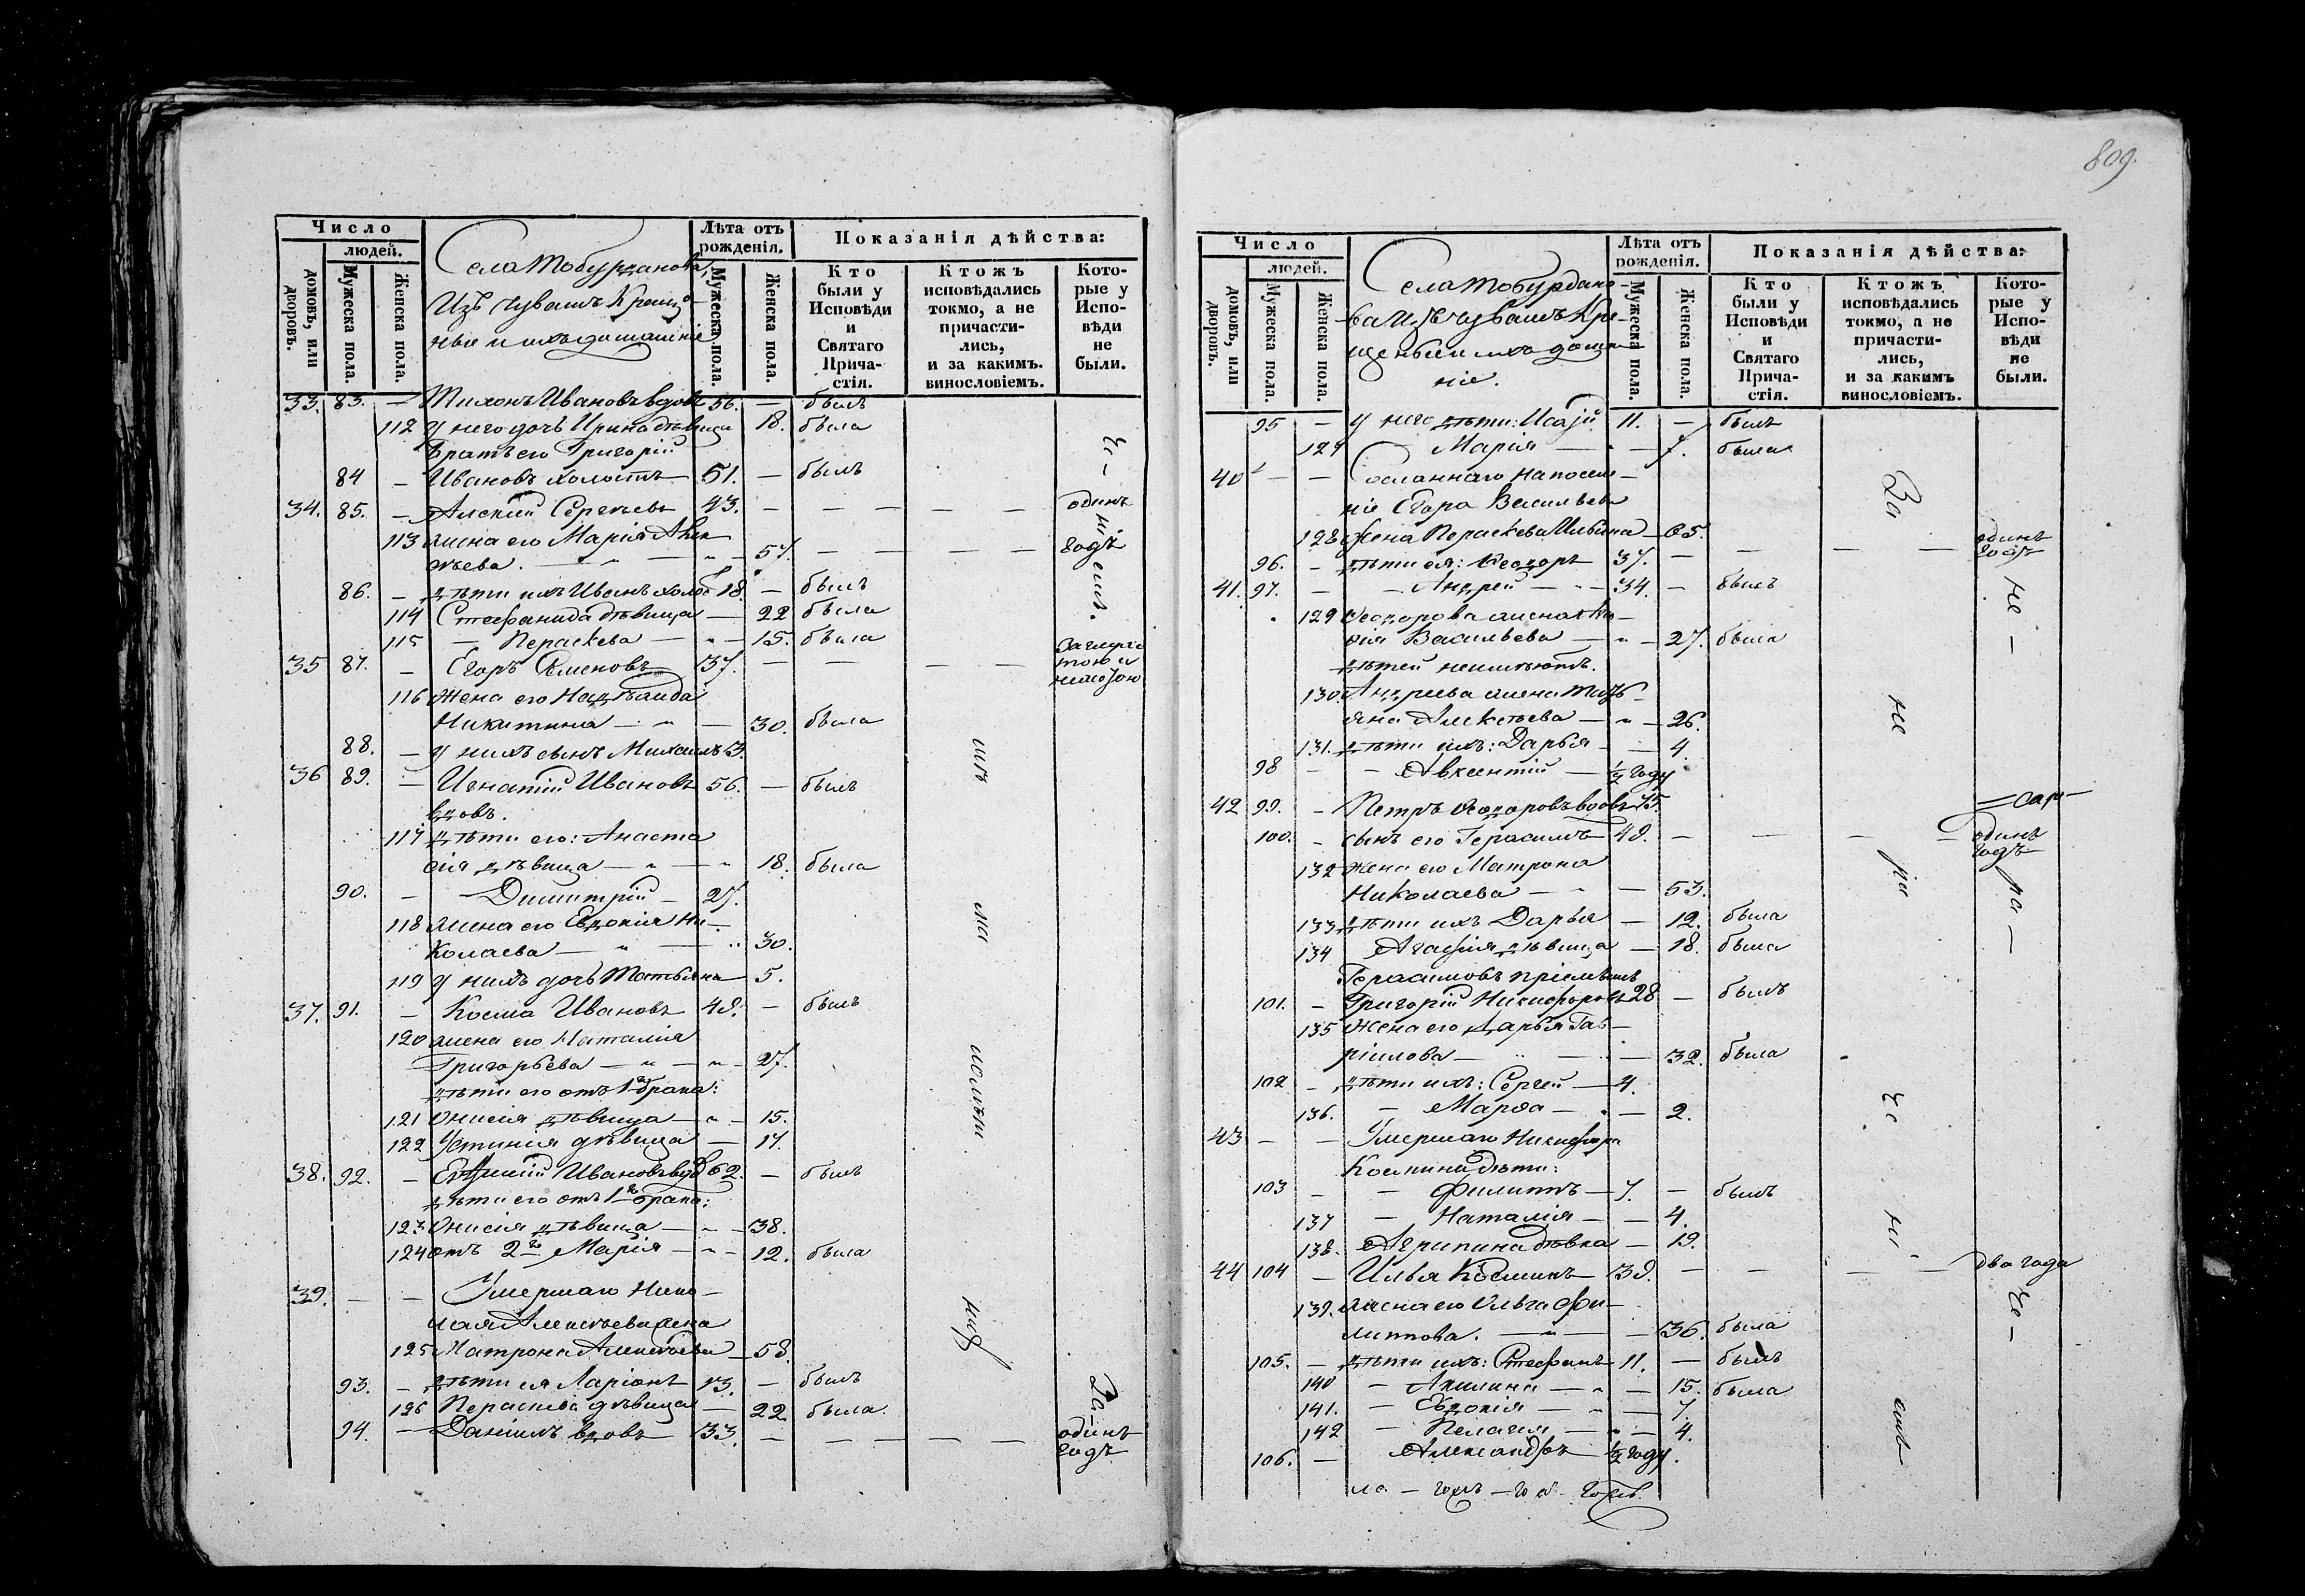 Число
людей.
домовъ, или дворовъ.
Мужеска пола.
Женска пола.
Села Тобурданова,
Изъ чувашъ Креще-
ные и ихъ домашніе
Лѣта отъ рожденія.
Мужеска пола.
Женска пола.
Показанія дѣйства:
Кто были у Исповѣди и Святаго Прича-стія.
Ктожъ исповѣдались токмо, а не причасти-лись, и за какимъ. винословіемъ.
Кото-рые у Испо-вѣди не были.
33. 83. — Тихонъ Ивановъ вдовъ 56. — былъ
112 У него дочь Ирина дѣвица 18. была
Братъ его Григорій
84 — Ивановъ холостъ 51. — былъ
34. 85. — Алексій Сергѣевъ 43. — — — — — одинъ
113 жена его Марія
57. — — — — годъ
86. — дѣти ихъ Иванъ холос 18. — былъ
114 Стефанида дѣвица — 22 была
115 — Параскева — 15. была
35 87. — Егоръ Семеновъ 37. — — — —
116 Жена его
Никитина — 30. была
88. — У нихъ сынъ Михаилъ 3.
36 89. — Игнатій Ивановъ 56. — былъ
вдовъ.
117 дѣти его: Анаста
сія дѣвица — 18. была
90. — Димитрій — 27.
118 жена его Евдокія Ни-
колаева — 30.
119 У нихъ дочь Татьяна 5.
37. 91. — Косма Ивановъ 48. — былъ
120 жена его Наталія
Григорьева — 27.
дѣти его отъ 1го брака:
121 Онисія дѣвица — 15.
122 Устинія дѣвица — 17.
38. 92. — Евфимій Ивановъ вдов 62. — былъ
дѣти его отъ 1го брака:
123 Онисія дѣвица — 38.
124 отъ 2го Марія — 12. была
39. — — Умершаго Нико-
лая Алексѣева жена
125 Матрона Алексѣева — 58.
93. — дѣти ея Ларіонъ 13. — былъ
126 Параскева дѣвица — 22. была
94. — Даніилъ вдовъ 33. — — — — — одинъ
годъ
809.
Число
людей.
домовъ, или дворовъ.
Мужеска пола.
Женска пола.
Села Тобурдано-
ва Изъ чувашъ Кре-
щеные и ихъ дома
ніе.
Лѣта отъ рожденія.
Мужеска пола.
Женска пола.
Показанія дѣйства:
Кто были у Исповѣди и Святаго Прича-стія.
Ктожъ исповѣдались токмо, а не причасти-лись, и за какимъ винословіемъ.
Кото-рые у Испо-вѣди не были.
95 — у него дѣти: Исаій 11. — былъ
127 Марія — 7. была
40 — — Сосланнаго на поселе-
ніе Егора Васильева
128 жена Параскева Ильина — 65.
96. — дѣти ея: Ѳеодоръ 37. — — — — одинъ годъ
41. 97. — — Андрей — 34. — былъ
129 Ѳеодорова жена
Васильева — 27. была
дѣтей неимѣютъ.
130. Андреева жена Тать
яна Алексѣева — 26.
131. дѣти ихъ: Дарья — 4.
98 — — Авксентій — ½ году
42 99. — Петръ Ѳеодоровъ вдовъ 75.
100. — сынъ его Герасимъ 48. — — — — одинъ годъ
132 жена его Матрона
Николаева — 53.
133 дѣти ихъ Дарья — 12. была
134 Агафія дѣвица — 18. была
Герасимовъ пріемышъ
101. — Григорій Никифоровъ 28 — былъ
135 Жена его Дарья Гав-
ріилова — 32. была
102 — дѣти ихъ: Сергей — 4.
136. — Марѳа — 2.
43 — — Умершаго Никифора
Космина дѣти:
103 — — Филиппъ — 7. — былъ
137 — Наталія — 4.
138. Агрипина дѣвка — 19.
44 104 — Илья Косминъ 38. — — — — два года
139. жена его Ольга Фи-
липпова. — 36. была
105. — дѣти ихъ: Стефанъ 11. — былъ
140 — Акилина — 15. была
141. — Евдокія — 7.
142 — Пелагія — 4.
106. — Александръ ½ году.